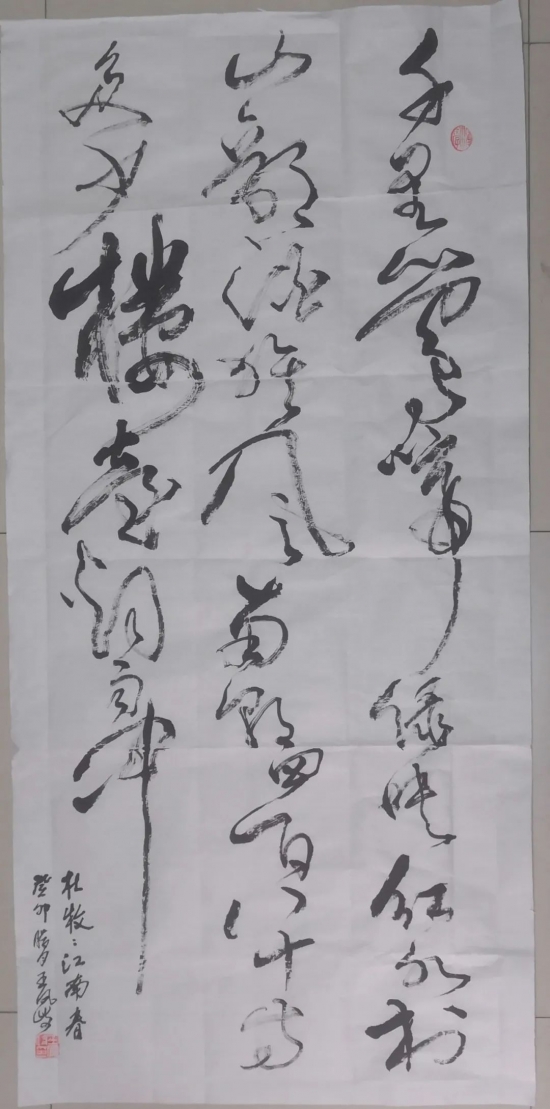 千里莺啼绿映红水村
山郭酒旗风南朝四百八十寺
多少樓臺烟雨中
杜牧 江南春
癸卯 月王